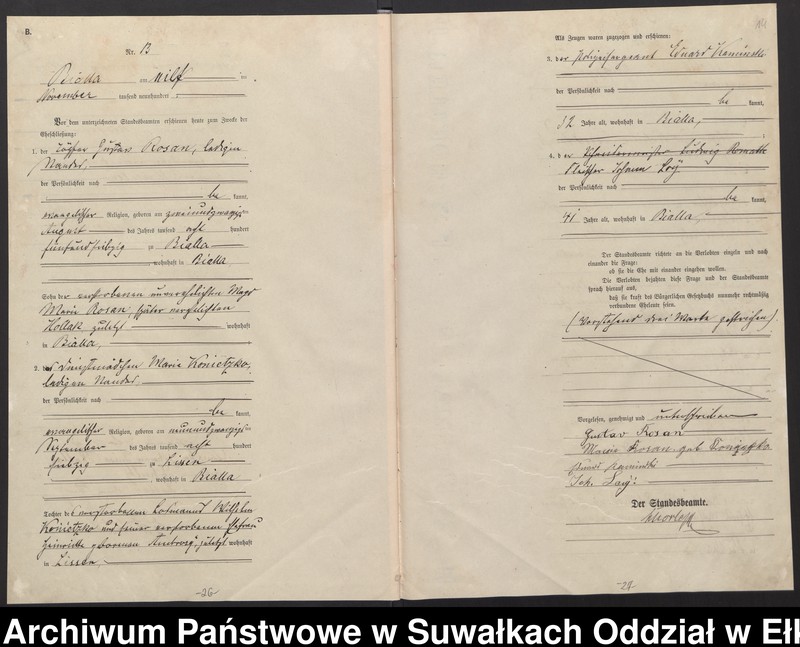 B.
Nr. 13
Bialla am elf ten
November tausend neunhundert
Vor dem unterzeichneten Standesbeamten erschienen heute zum Zwecke der
Eheschließung:
1. der Töpfer Gustav Rosan, ledigen
Standes
der Persönlichkeit nach
be kannt,
evangelischer Religion, geboren am
August des Jahres tausend acht hundert
fünfundsiebzig zu Bialla
, wohnhaft in Bialla
Sohn der verstorbenen unverehelichten Magd
Marie Rosan später verehelichten
zuletzt wohnhaft
in Bialla,
2. das Dienstmädchen Marie Konietzko,
ledigen Standes
der Persönlichkeit nach
be kannt,
evangelischer Religion, geboren am neunundzwanzig
September des Jahres tausend acht hundert
siebzig zu Lissen
, wohnhaft in Bialla
Tochter des verstorbenen Losmanns Wilhelm
Konietzko und seiner verstorbenen Ehefrau
geborenen zuletzt wohnhaft
in Lissen,
-26-
Als Zeugen waren zugezogen und erschienen:
3. der Polizeisergeant Eduard Kaminski
der Persönlichkeit nach
be kannt,
32 Jahre alt, wohnhaft in Bialla,
4. der Ludwig
Johann
der Persönlichkeit nach
be kannt,
41 Jahre alt, wohnhaft in Bialla,
Der Standesbeamte richtete an die Verlobten einzeln und nach
einander die Frage:
ob sie die Ehe mit einander eingehen wollen.
Die Verlobten bejahten diese Frage und der Standesbeamte
sprach hierauf aus,
daß sie kraft des Bürgerlichen Gesetzbuchs nunmehr rechtmäßig
verbundene Eheleute seien.
(Vorstehend drei Worte gestrichen)
Vorgelesen, genehmigt und unterschrieben
Gustav Rosan
Marie Rosan geb
Kaminski
Joh.
Der Standesbeamte.
Archiwum Państwowe w Suwałkach Oddział w Ełk